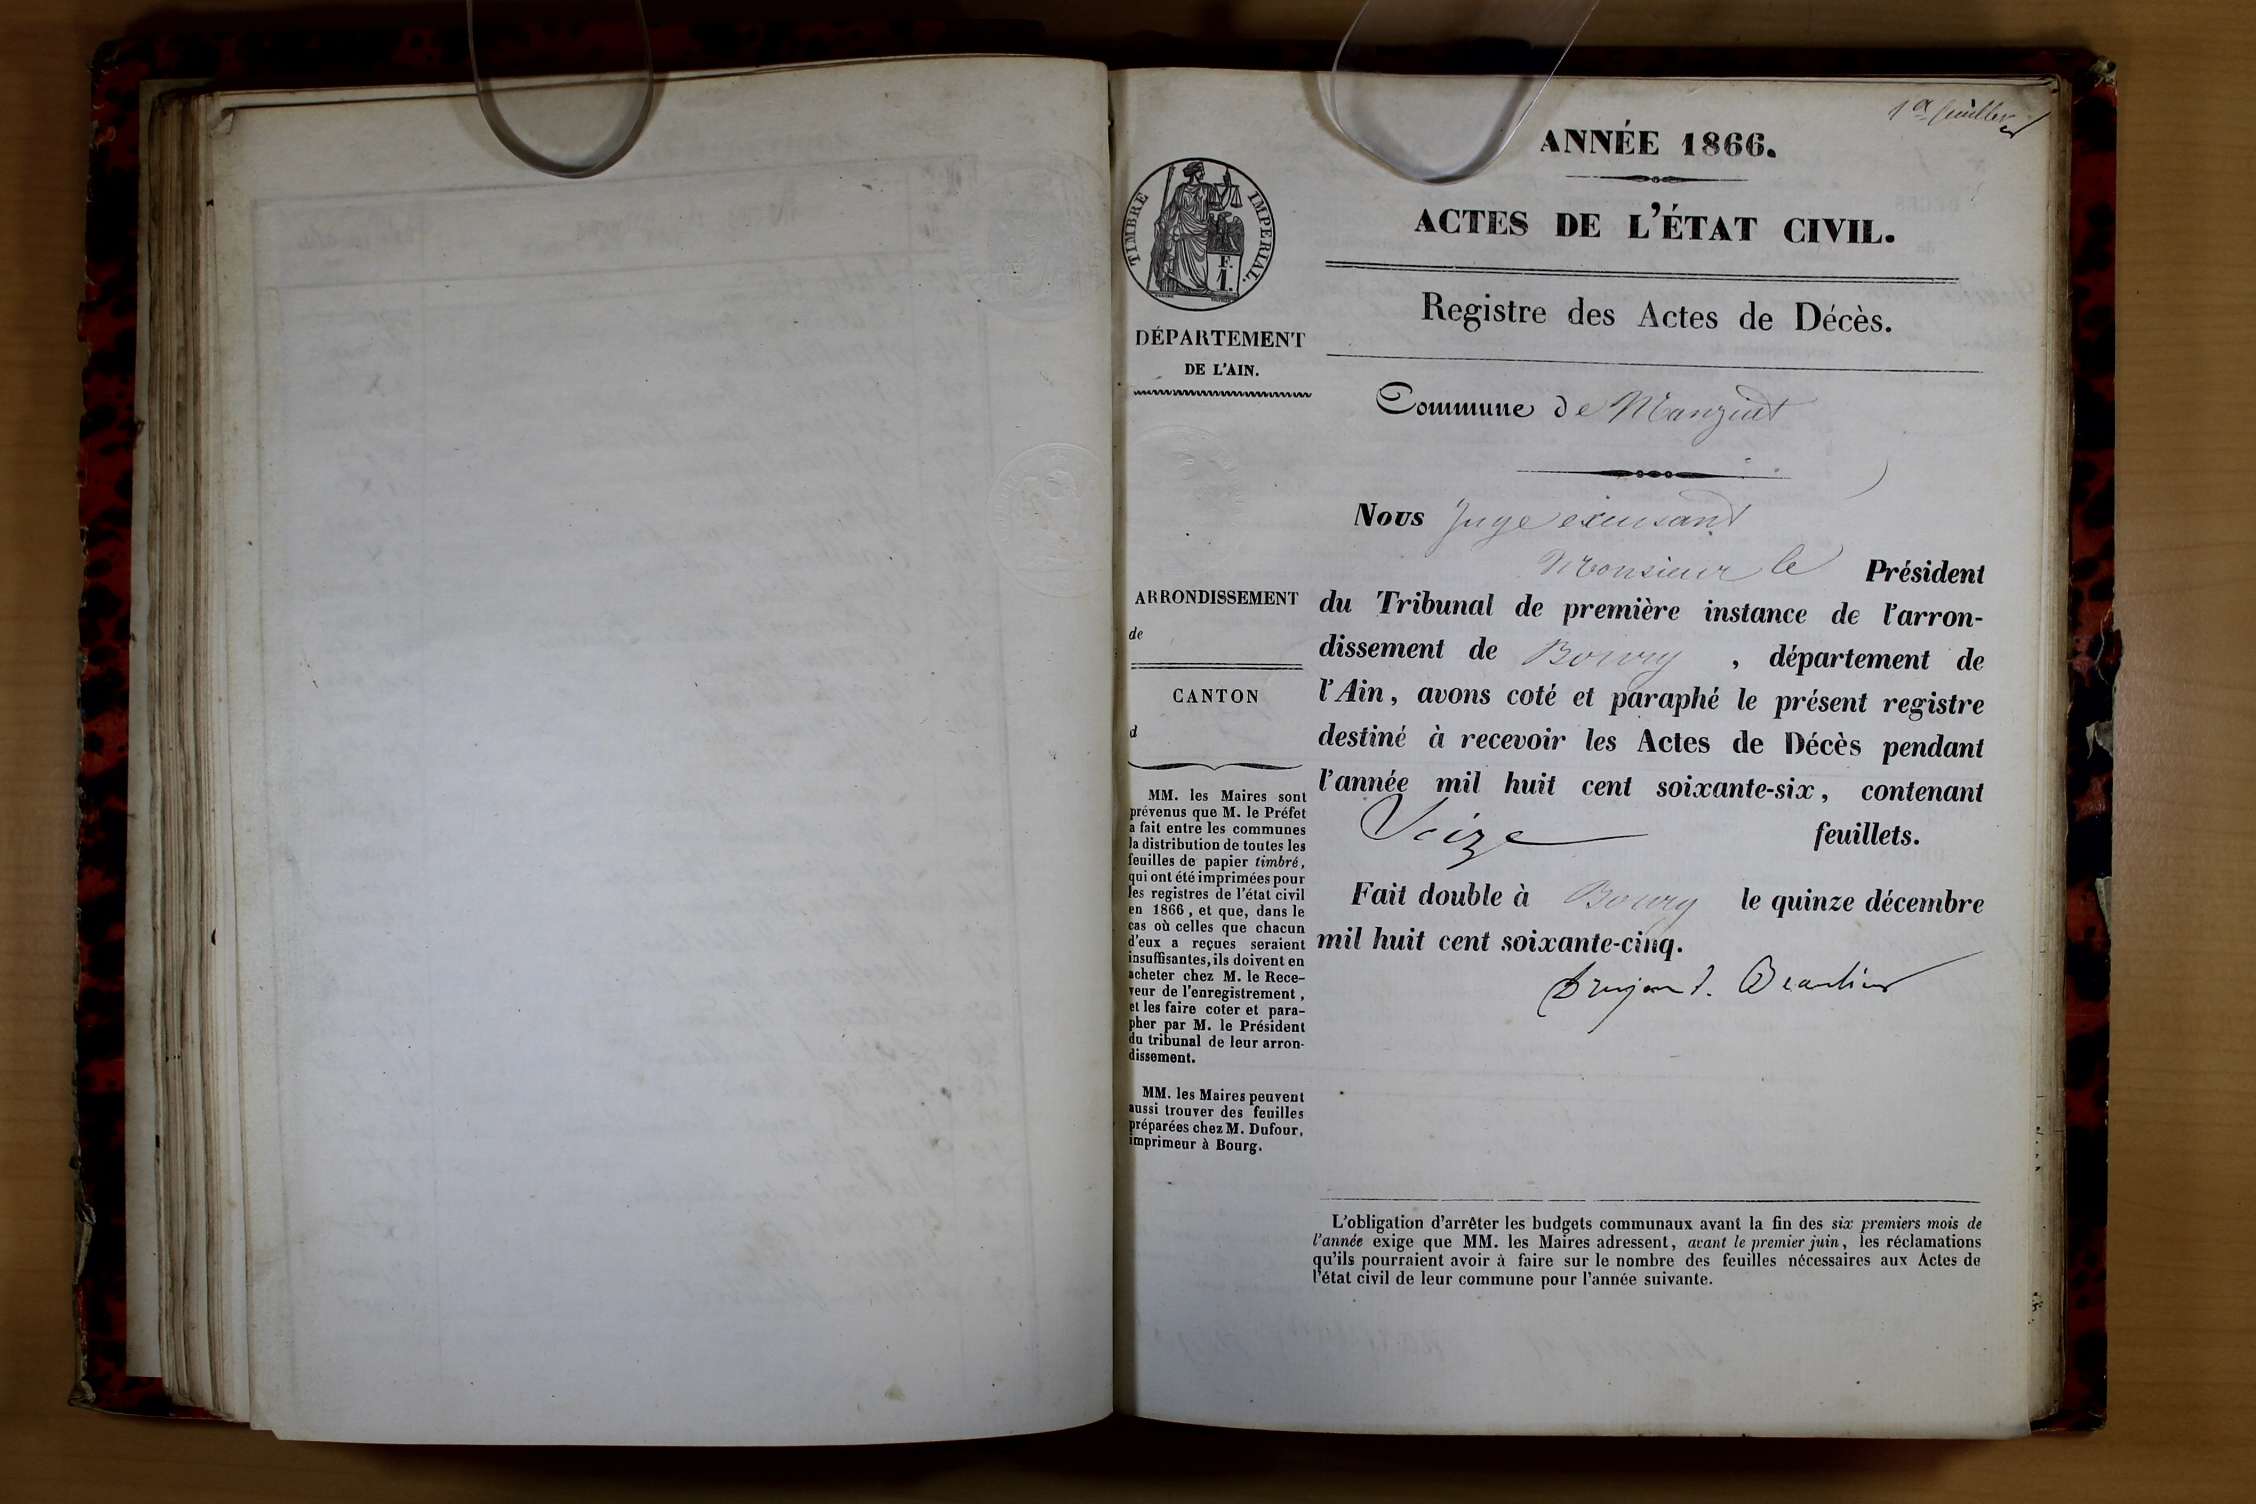 1er feuillet
ANNÉE 1866.
ACTES DE L'ÉTAT CIVIL.
Registre des Actes de Décès.
TIMBRE IMPERIAL.
F.
1.
DÉPARTEMENT
DE L'AIN.
Commune de Manziat
Nous Juge excusant
Monsieur le Président
du Tribunal de première instance de l'arron-
dissement de Bourg, département de
l'Ain, avons coté et paraphé le présent registre
destiné à recevoir les Actes de Décès pendant
l'année mil huit cent soixante-six, contenant
Seize feuillets.
Fait double à Bourg le quinze décembre
mil huit cent soixante-cinq.
ARRONDISSEMENT
de
CANTON
d
MM. les Maires sont
prévenus que M. le Préfet
a fait entre les communes
la distribution de toutes les
feuilles de papier timbré,
qui ont été imprimées pour
les registres de l'état civil
en 1866, et que, dans le
cas où celles que chacun
d'eux a reçues seraient
insuffisantes, ils doivent en
acheter chez M. le Rece-
veur de l'enregistrement,
et les faire coter et para-
pher par M. le Président
du tribunal de leur arron-
dissement.
MM. les Maires peuvent
aussi trouver des feuilles
préparées chez M. Dufour,
imprimeur à Bourg.
L'obligation d'arrêter les budgets communaux avant la fin des six premiers mois de
l'année exige que MM. les Maires adressent, avant le premier juin, les réclamations
qu'ils pourraient avoir à faire sur le nombre des feuilles nécessaires aux Actes de
l'état civil de leur commune pour l'année suivante.